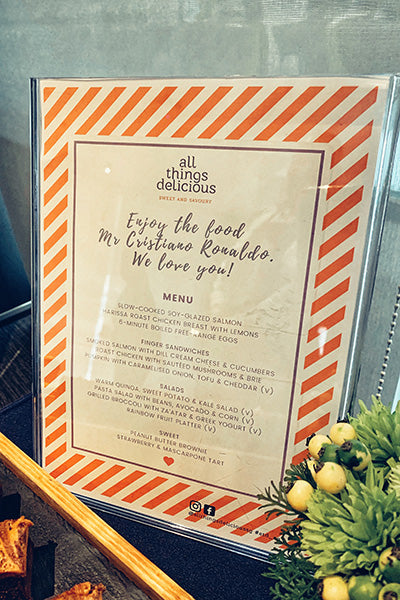 all
things
delicious
SWEET AND SAVOURY
Enjoy the food
Mr Cristiano Ronaldo.
We love you!
MENU
SLOW-COOKED SOY-GLAZED SALMON
HARISSA ROAST CHICKEN BREAST WITH LEMONS
6-MINUTE BOILED FREE-RANGE EGGS
FINGER SANDWICHES
SMOKED SALMON WITH DILL CREAM CHEESE & CUCUMBERS
ROAST CHICKEN WITH SAUTEED MUSHROOMS & BRIE
PUMPKIN WITH CARAMELISED ONION, TOFU & CHEDDAR (V)
SALADS
WARM QUINOA, SWEET POTATO & KALE SALAD (V)
PASTA SALAD WITH BEANS, AVOCADO & CORN (V)
GRILLED BROCCOLI WITH ZA'ATAR & GREEK YOGURT (V)
RAINBOW FRUIT PLATTER (V)
SWEET
PEANUT BUTTER BROWNIE
STRAWBERRY & MASCARPONE TART